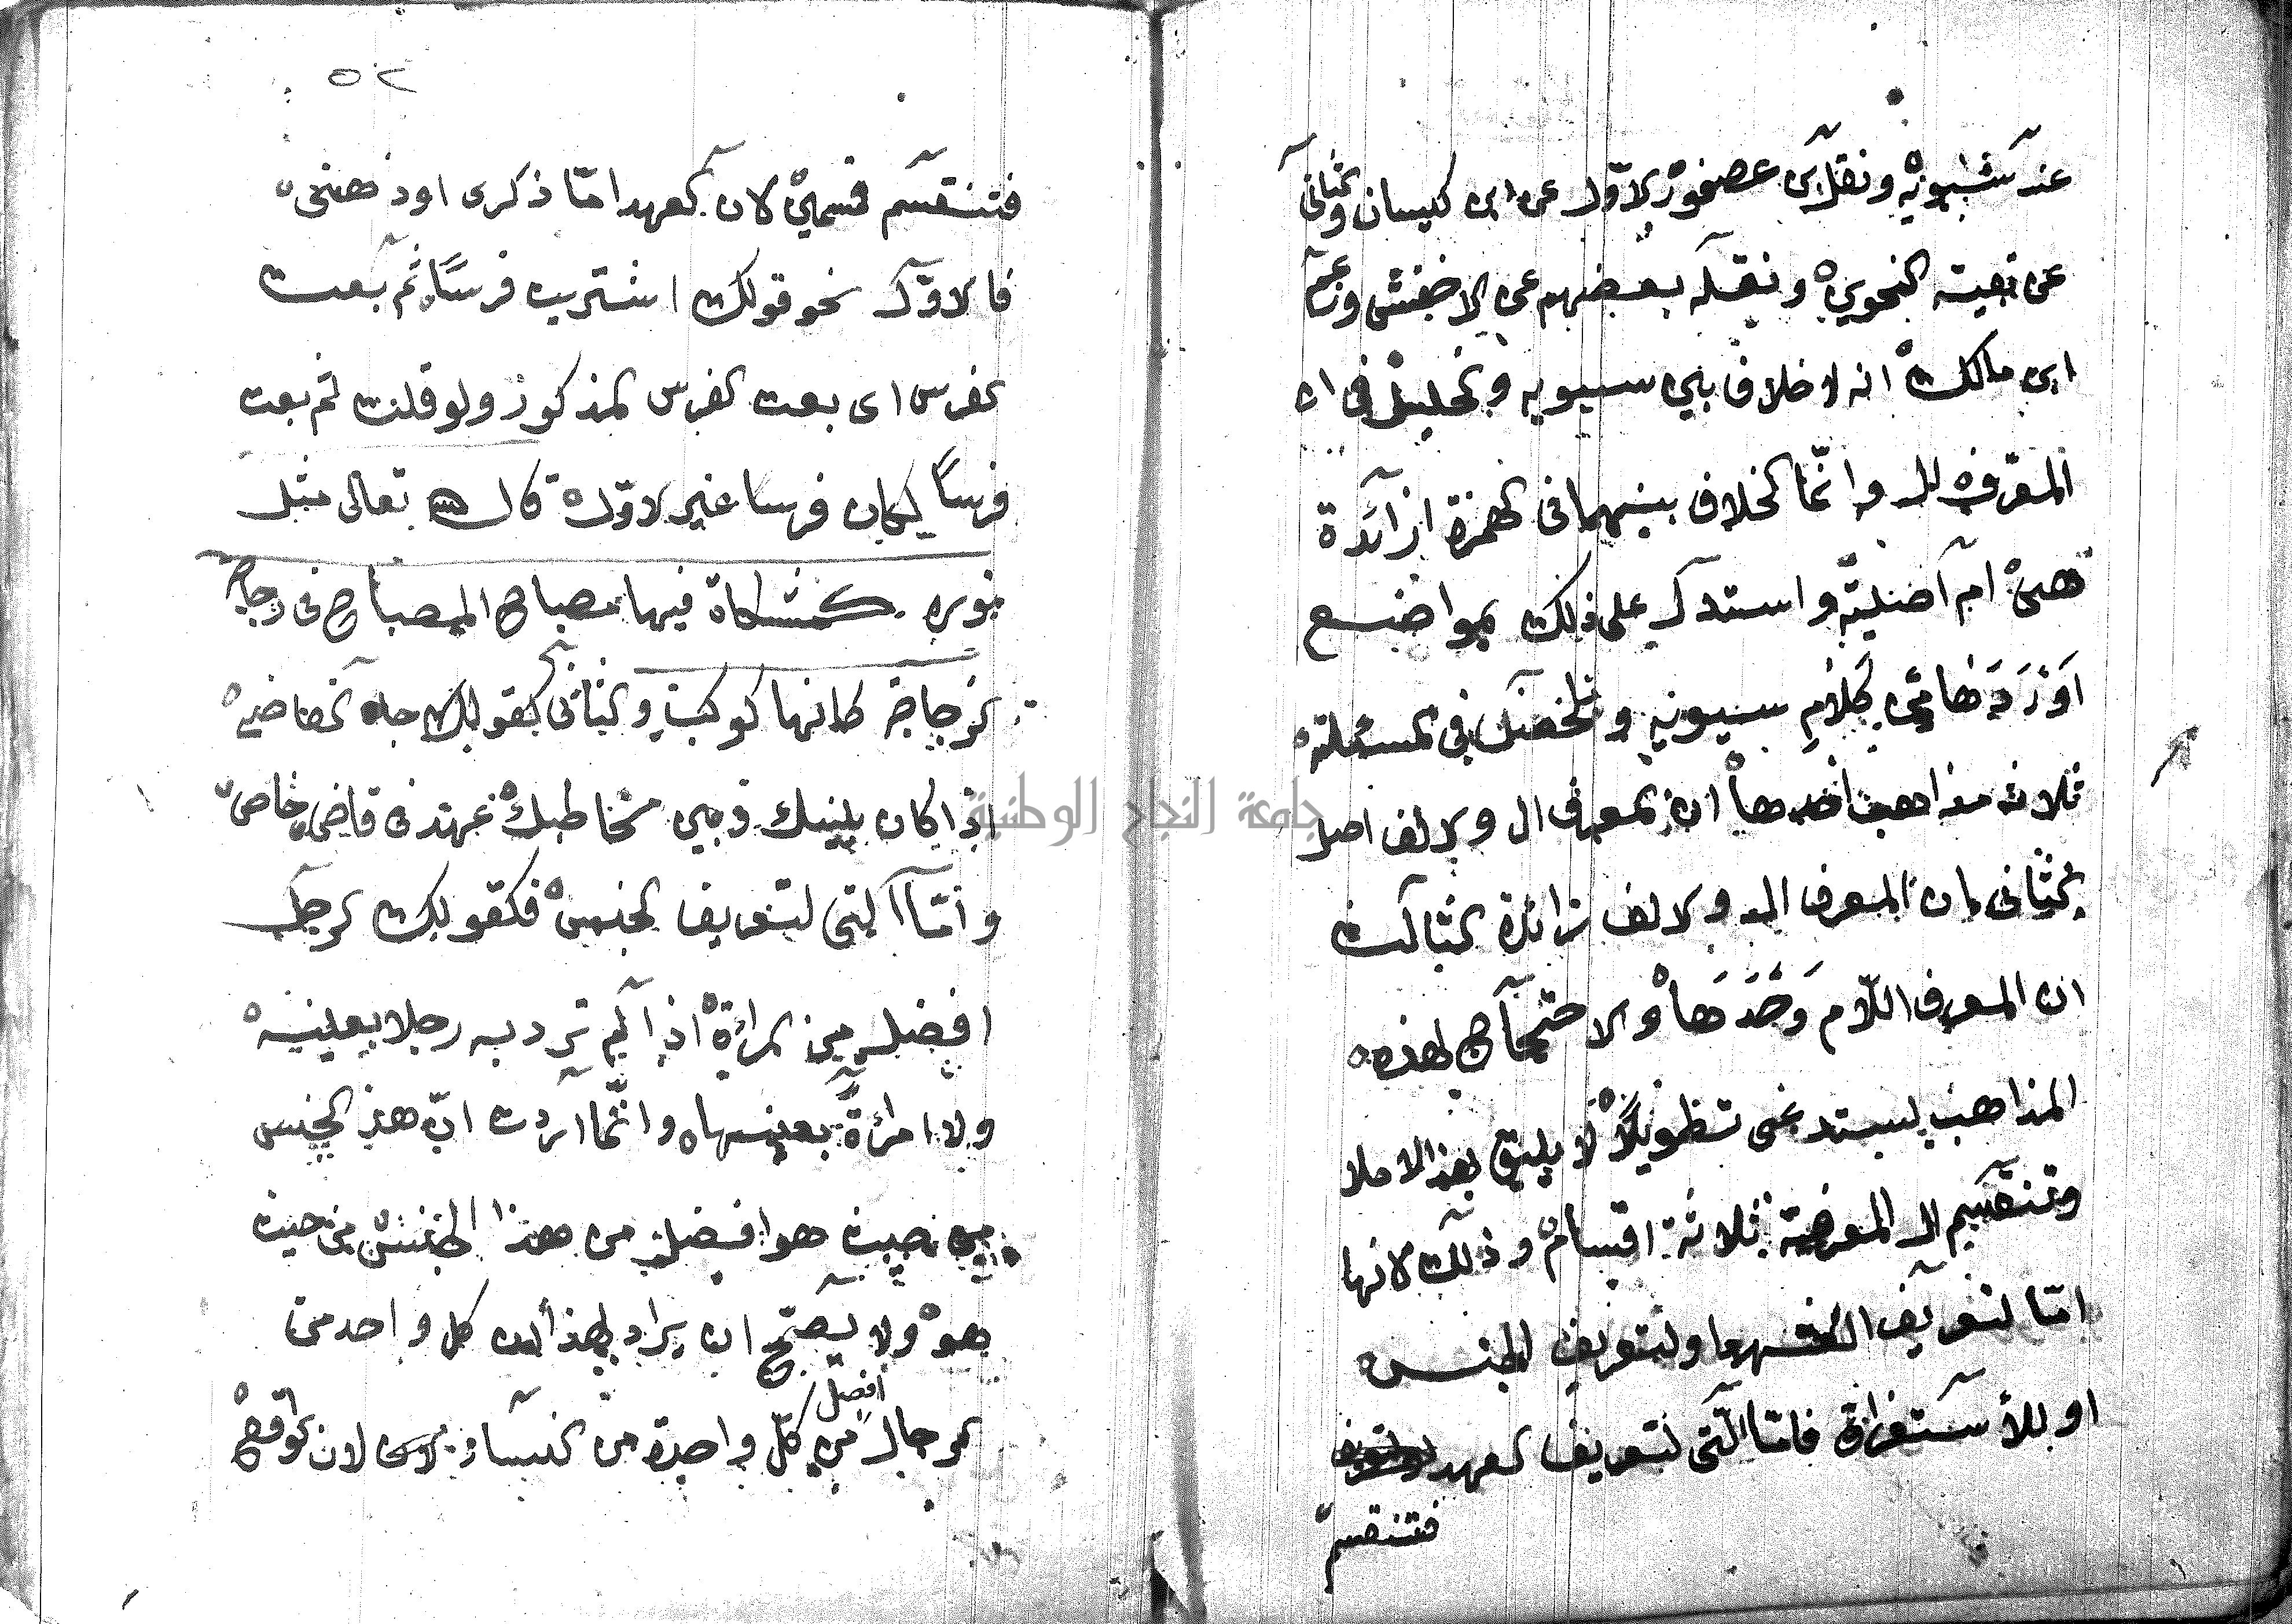 عند سيبويه ونقل ابن عصفور الاول عن ابن كيسان والثاني
عن بقية النحويين ونقله بعضهم عن الاخفش وزعم
ابن مالك انه لا خلاف بين سيبويه والخليل في ان
المعرف ال وانما الخلاف بينهما في الهمزة ازائدة
هي ام اصلية واستدل على ذلك بمواضع
اوردها من كلام سيبويه وتلخص في المسئلة
ثلاث مذاهب احدها ان المعرف ال والالف اصل
الثاني ان المعرف ال والالف زائدة الثالث
ان المعرف اللام وحدها والاحتجاج لهذه
المذاهب يستدعي تطويلا لا يليق بهذا الاملا
وتنقسم ال المعرفة ثلاثة اقسام وذلك لانها
اما لتعريف العهد او لتعريف الجنس
او للأستغراق فاما التي لتعريف العهد
فتنقسم
٥٢
فتنقسم قسمين لان العهد اما ذكرى او ذهنى
فالاول نحو قولك اشتريت فرسا ثم بعت
الفرس اى بعت الفرس المذكور ولو قلت ثم بعت
فرسا لكان فرسا غير الاول قال الله تعالى مثل
نوره كمشكاة فيها مصباح المصباح في زجاجة
الزجاجة كانها كوكب والثاني كقولك جاء القاضي
اذا كان بينك وبين مخاطبك عهد في قاضي خاص
واما التي لتعريف الجنس فكقولك الرجل
افضل من المراة اذا لم ترد به رجلا بعينه
ولا امرأة بعينها وانما اردت ان هذ الجنس
من حيث هو افضل من هذا الجنس من حيث
هو ولا يصح ان يراد بهذا ان كل واحد من
الرجال افضل من كل واحدة من النساء لان الواقع
جامعة النجاح الوطنية